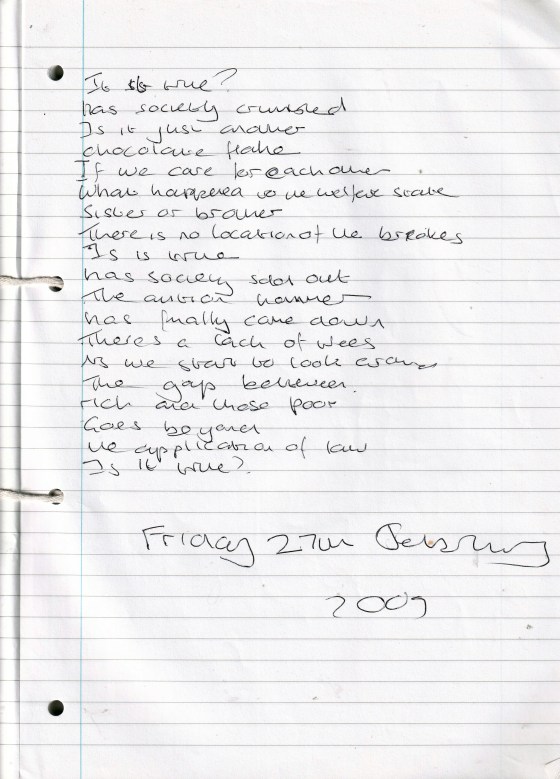 Is it true?
has society crumbled
Is it just another
chocolate flake
If we care for each other
What happened to the welfare state
Sister or brother
There is no location of the breakes
Is is true
has society sold out
The auction hammer
has finally came down
There's a lack of trees
As we start to look around
The gap between
rich and those poor
Goes beyond
the application of law
Is it true?
Friday 27th February
2009